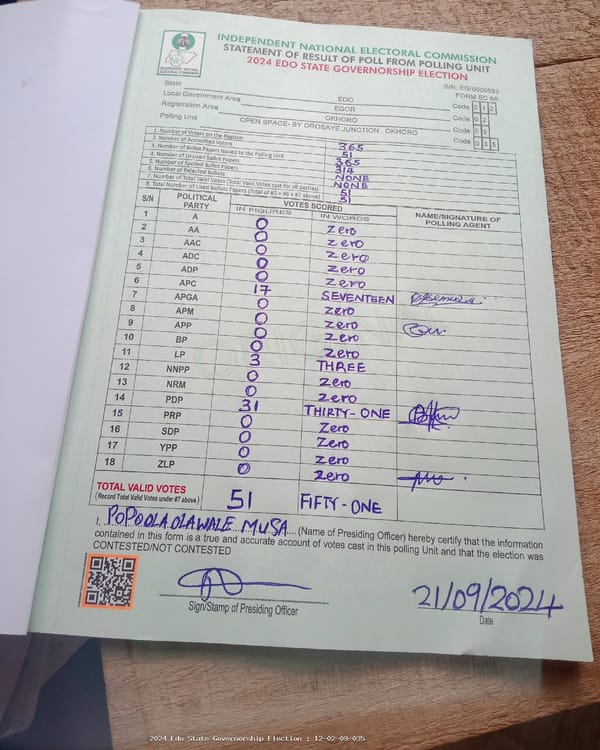 INDEPENDENT NATIONAL ELECTORAL COMMISSION
STATEMENT OF RESULT OF POLL FROM POLLING UNIT
2024 EDO STATE GOVERNORSHIP ELECTION
S/N: EG/0000593
FORM EC 8A
State EDO Code 0 1 2
Local Government Area EGOR Code 0 2
Registration Area OKHORO Code 0 9
Polling Unit OPEN SPACE- BY OROSAYE JUNCTION , OKHORO Code 0 3 5
1. Number of Voters on the Register 365
2. Number of Accredited Voters 51
3. Number of Ballot Papers Issued to the Polling Unit 365
4. Number of Unused Ballot Papers 314
5. Number of Spoiled Ballot Papers NONE
6. Number of Rejected Ballots NONE
7. Number of Total Valid Votes (Total Valid Votes cast for all parties) 51
8. Total Number of Used Ballots Papers (Total of #5 + #6 + #7 above) 51
S/N POLITICAL PARTY VOTES SCORED NAME/SIGNATURE OF POLLING AGENT
IN FIGURES IN WORDS
1 A 0 Zero
2 AA 0 Zero
3 AAC 0 Zero
4 ADC 0 Zero
5 ADP 0 Zero
6 APC 17 SEVENTEEN
7 APGA 0 Zero
8 APM 0 Zero
9 APP 0 Zero
10 BP 0 Zero
11 LP 3 THREE
12 NNPP 0 Zero
13 NRM 0 Zero
14 PDP 31 THIRTY-ONE
15 PRP 0 Zero
16 SDP 0 Zero
17 YPP 0 Zero
18 ZLP 0 Zero
TOTAL VALID VOTES 51 FIFTY-ONE
(Record Total Valid Votes under #7 above)
I, POPOOLA OLAWALE MUSA (Name of Presiding Officer) hereby certify that the information
contained in this form is a true and accurate account of votes cast in this polling Unit and that the election was
CONTESTED/NOT CONTESTED
21/09/2024
Sign/Stamp of Presiding Officer Date
2024 Edo State Governorship Election : 12-02-09-035